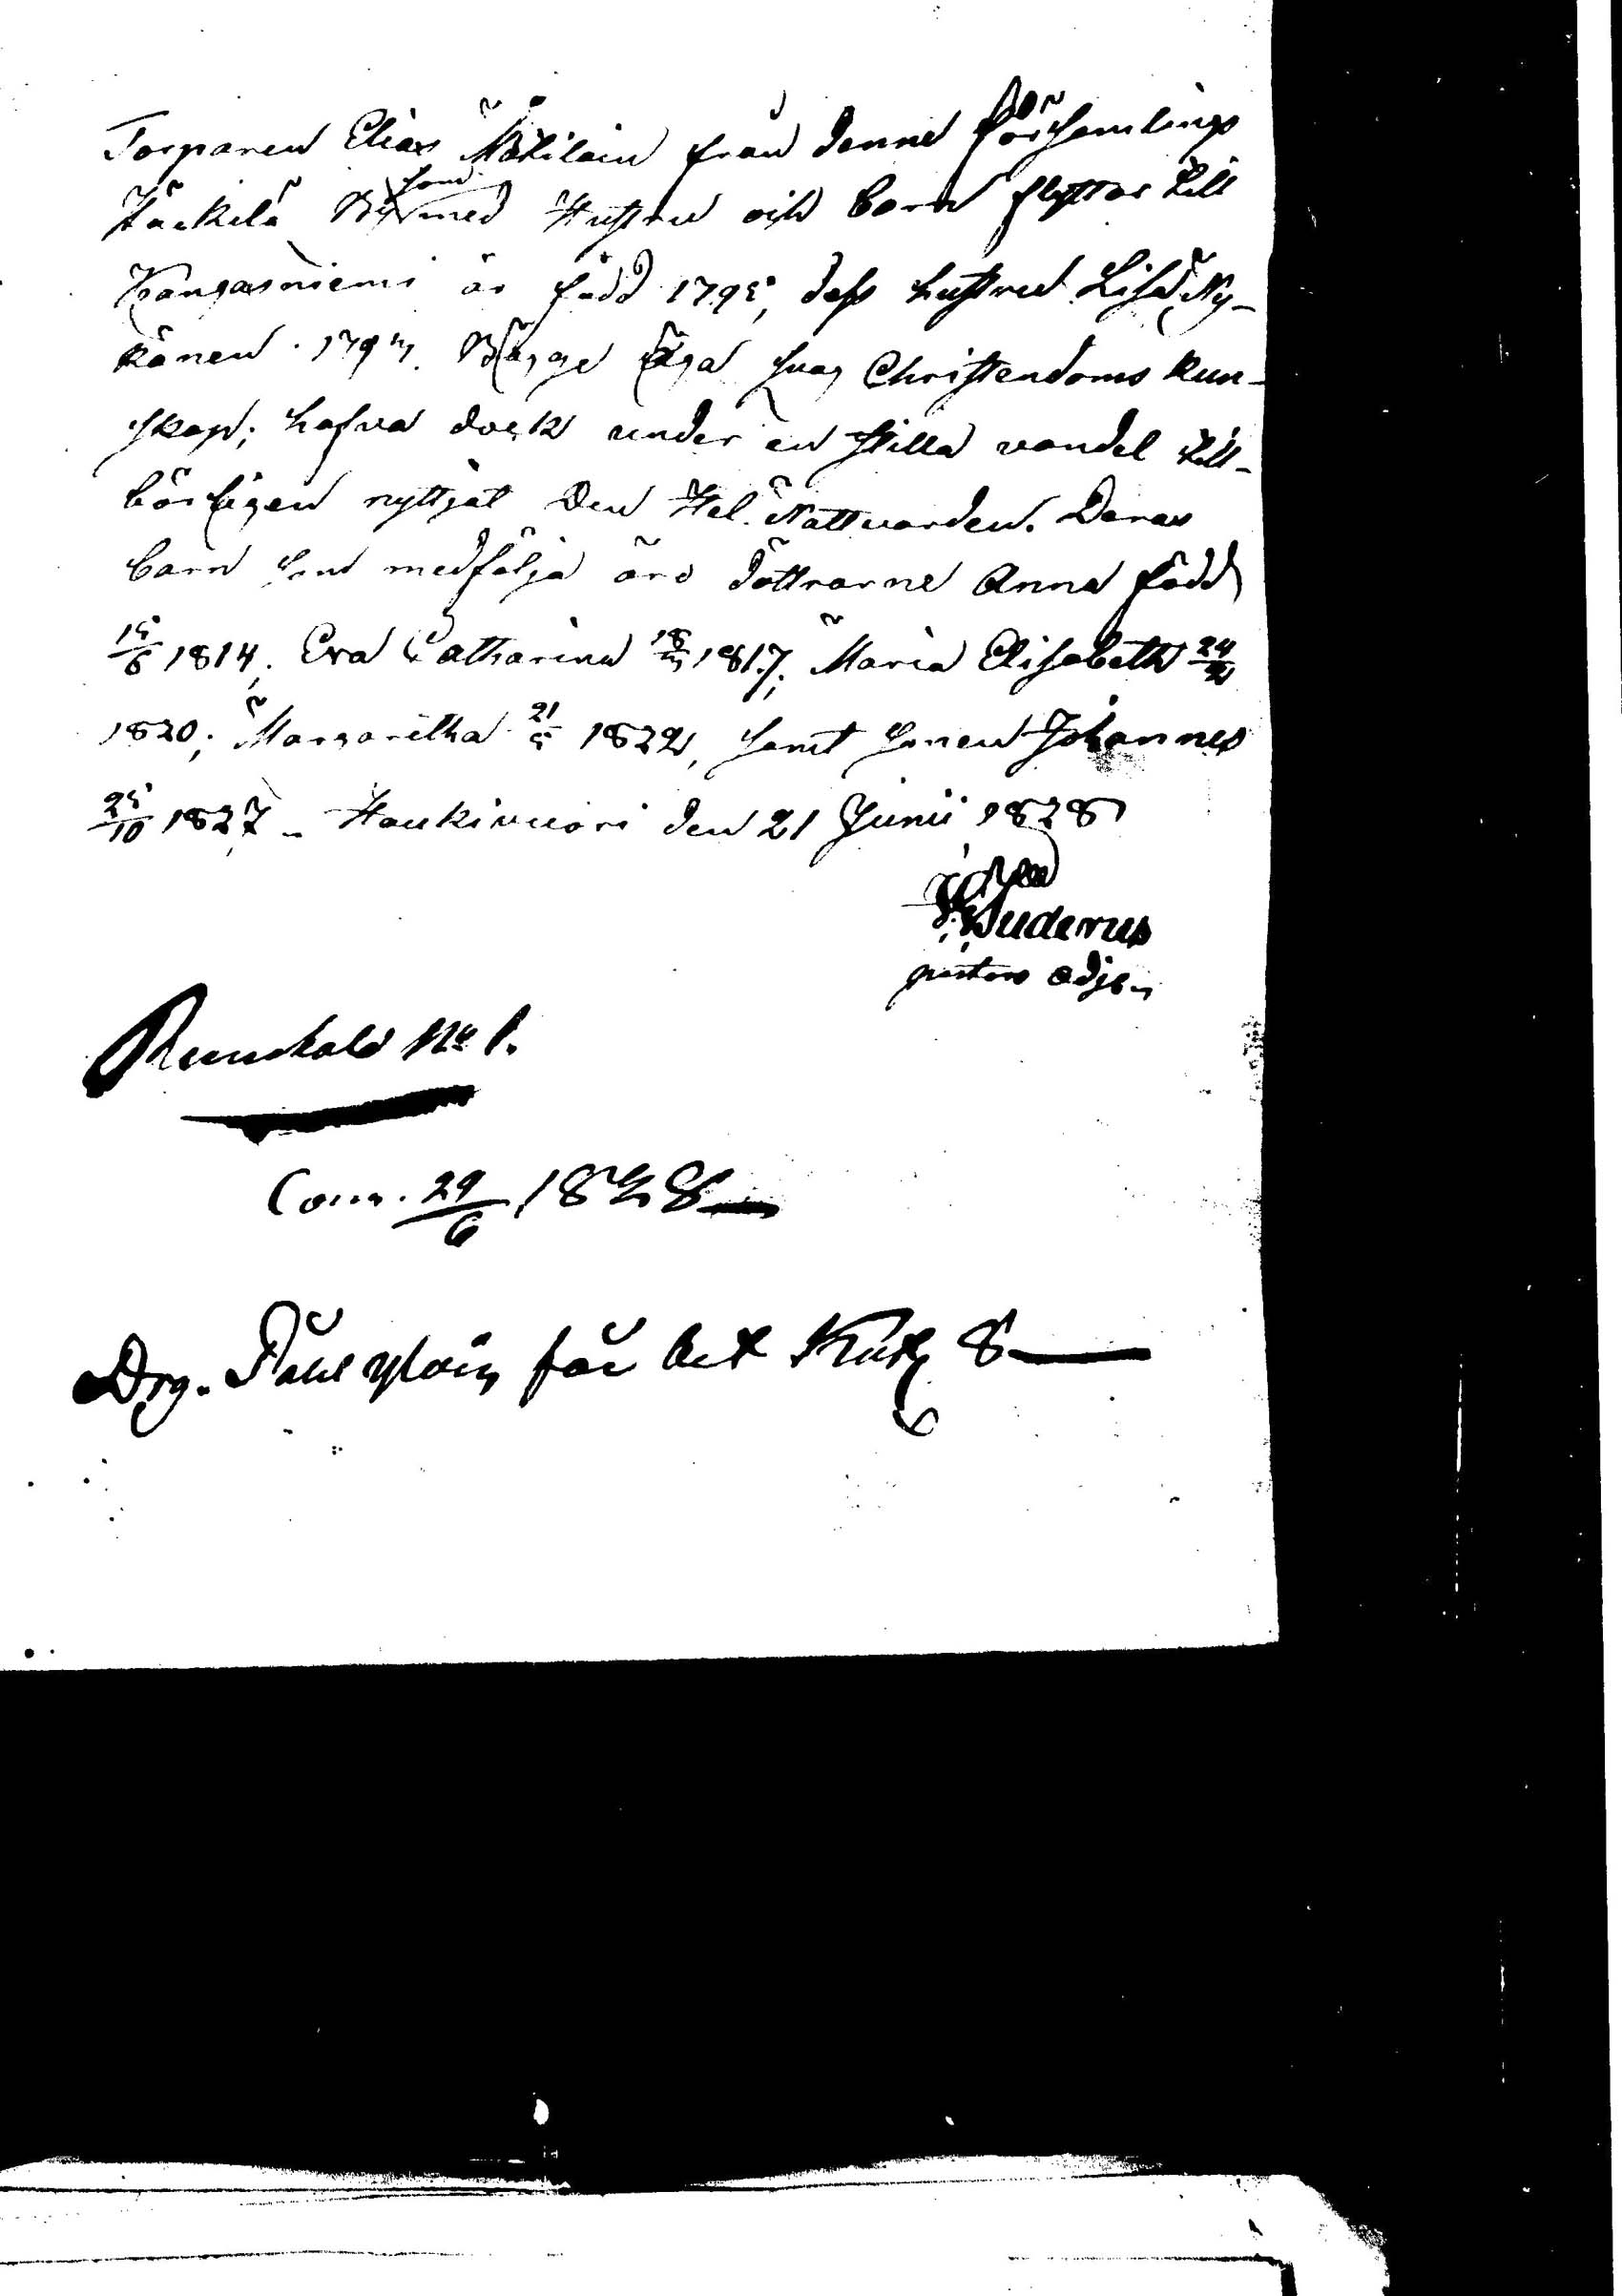 Torparen Elias Mähiläin från denne Församlings
Jäckälä By som med Hustru och barn flyttar till
Kangasniemi är född 1795, dess hustru Lisa Ny-
känen 1797. Bägge äga svag Christendoms kun-
skap; hafva dock under en stilla vandel till-
börligen nyttjat Den Hel. Nattvarden. Deras
barn som medfölja äro döttrarne Anna född
15/6 1814, Eva Catharina 18/3 1817; Maria Elisabeth 24/2
1820; Margaretha 21/5 1822, samt sonen Johannes
25/10 1827 - Haukivuori den 21 Junii 1828
Z. Cygnæus
pastors adj.
Reinikala No 1.
Com. 29/6 1828
Drg. för